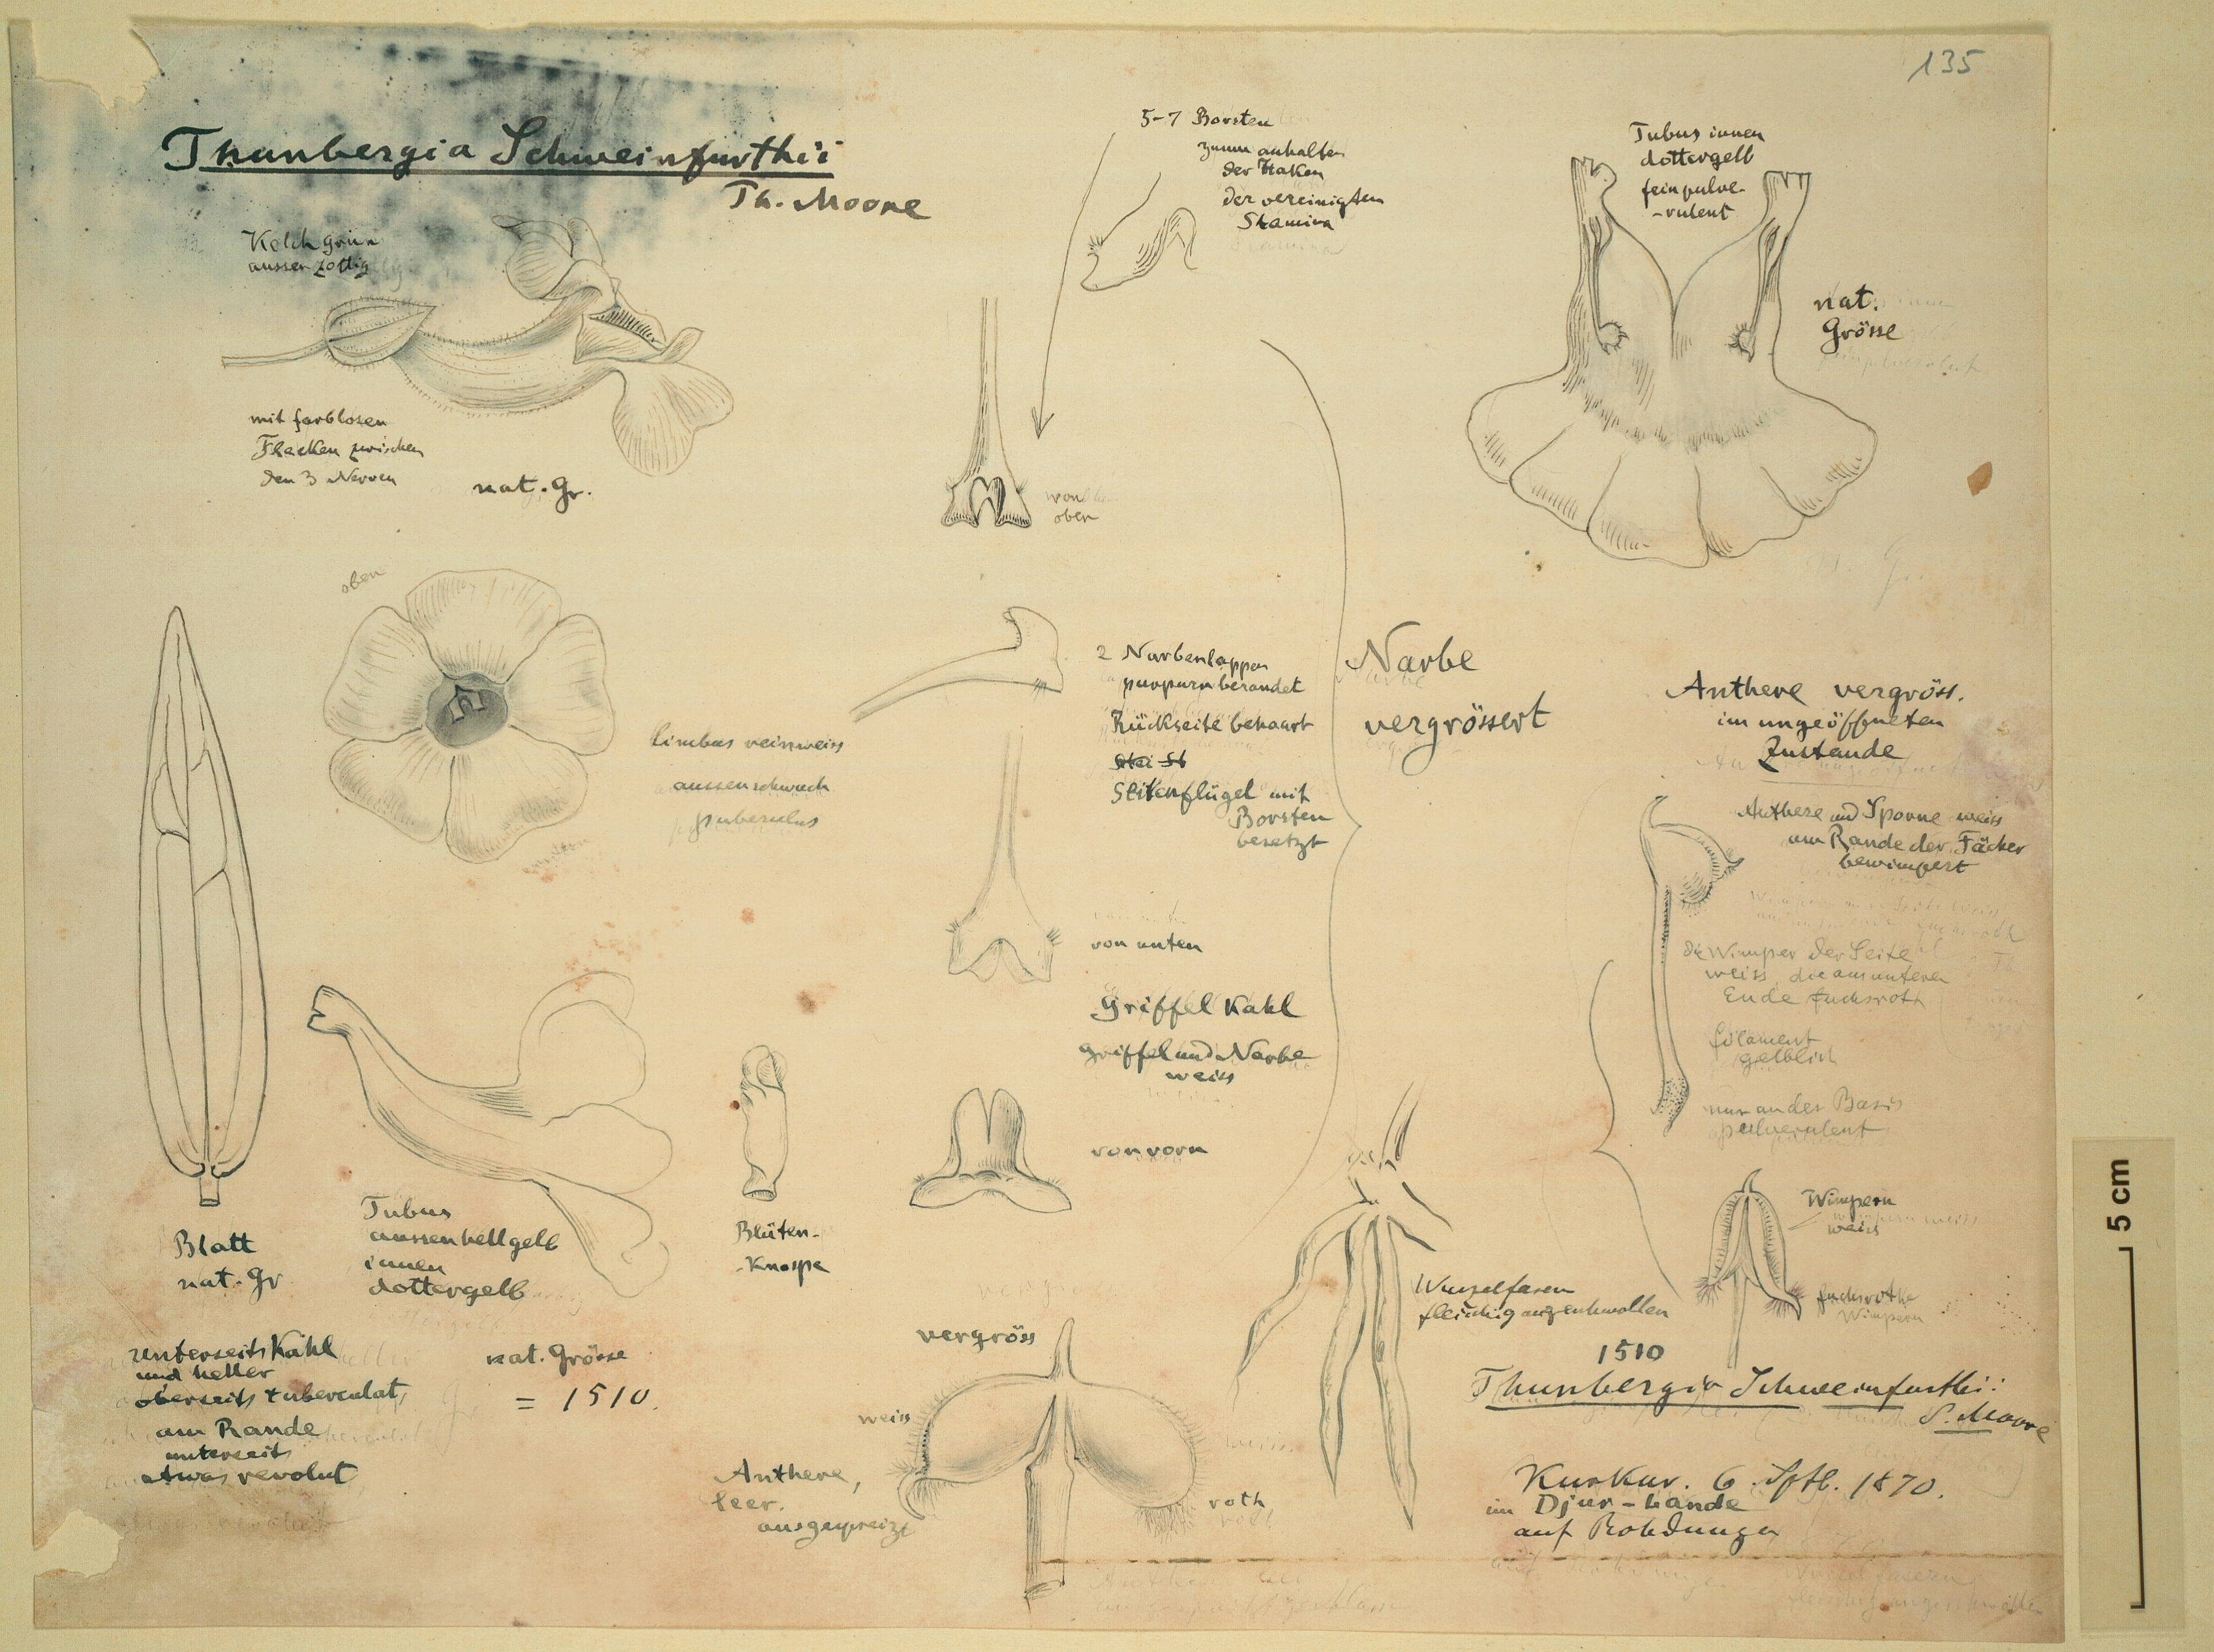 135
Thunbergia Schweinfurthii
Th. Moore
Kelch grün
aussen zottig
mit farblosen
Flecken zwischen
den 3 Nerven
nat. Gr.
5-7 Borsten
zum anhalten
der Haken
der vereinigten
Stamina
von
oben
Tubus innen
dottergelb
fein pulve-
-rulent
nat.
Grösse
oben
limbus reinweiss
aussen schwach
puberulus
2 Narbenlappen
purpurn berandet
Rückseite behaart
Seitenflügel mit
Borsten
besetzt
Narbe
vergrössert
von unten
Griffel Kahl
Griffel und Narbe
weiss
von vorn
Anthere vergröss.
im ungeöffneten
Zustande
Anthere und Sporne weiss
am Rande der Fächer
bewimpert
die Wimper der Seite
weiss, die am unteren
Ende fuchsroth
filament
gelblich
nur an der Basis
pulverulent
Wimpern
weiss
fuchsrothe
Wimpern
Blatt
nat. Gr
unterseits Kahl
und heller
oberseits tuberculat,
am Rande
unterseits
etwas revolut
Tubus
aussen hellgelb
innen
dottergelb
nat. Grösse
= 1510.
Blüten-
-Knospe
vergröss
weiss
Anthere,
leer.
ausgespreizt
roth
Wurzelfasern
fleischig angeschwollen
1510
Thunbergia Schweinfurthii
S. Moore
Kurkur. 6. Sptb. 1870.
im Djur-Lande
auf Rohdungen
5 cm